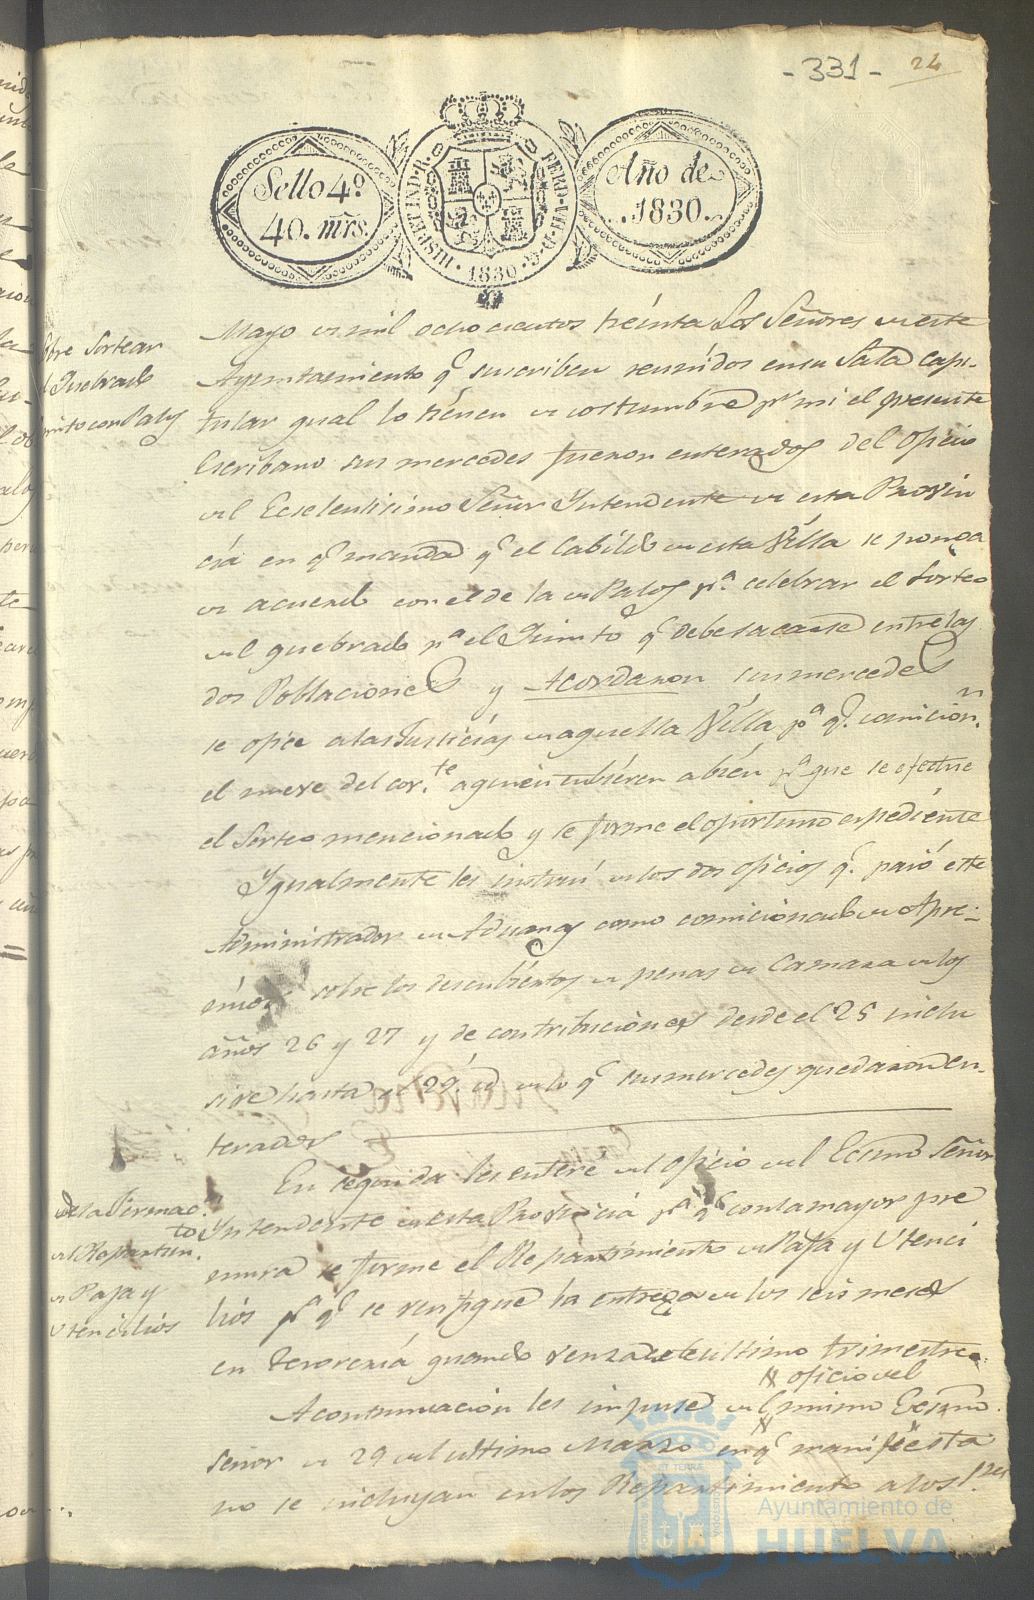 - 331 -
24
Sello 4º
40. mrs.
HISP. ET IND. R. FERD. VII. D. G. 1830
Año de
1830.
Mayo de mil ochocientos treinta Los Señores de este
Ayuntamiento q.e suscriben reunidos en su Sala capi-
tular qual lo tienen de costumbre p.r mi el presente
Escribano sus mercedes fueron enterados del oficio
del Ecselentisimo Señor Yntendente de esta Provin
cia en q.e manda q.e el Cabildo de esta Villa se ponga
de acuerdo con el de la de Palos p.a celebrar el sorteo
del quebrado p.a el Quinto q.e debe sacarse entre las
dos Poblaciones y Acordaron sus mercedes
se oficie a las Justicias de aquella Villa p.a q.e comicion.n
el nueve del cor.te a quien tubieren a bien p.a que se efectue
el Sorteo mencionado y se forme el oportuno espediente
Ygualmente les instruí de los dos oficios q.e pasó este
Administrador de Aduanas como comicionado de Apre-
mios sobre los descubiertos de penas de Camara de los
años 26 y 27 y de contribuciones desde el 25 inclu
sive hasta el 29. de lo q.e sus mercedes quedaron en-
terados
En seguida les enteré del oficio del Ecsmo Señor
Yntendente de esta Provincia p.a q.e con la mayor pre
mura se forme el Repartimiento de Paja y Utenci
lios p.a q.e se verifique la entrega de los seis meses
en Tesoreria quando venza este ultimo trimestre.
oficio del
A continuacion les impuse del mismo Ecsmo.
Señor de 29 del ultimo Marzo en q.e manifiesta
no se incluyan en los Repartimiento a los
Sobre Sortear
el Quebrado
Quinto con Palos
De la Formac.n
del Repartim.to
de Paja y
Utencilios
Ayuntamiento de
HUELVA